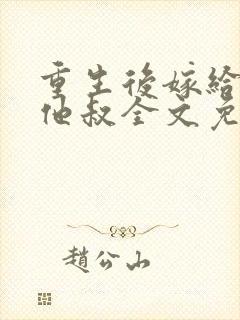 重生後嫁給
他叔全文免
趙公山